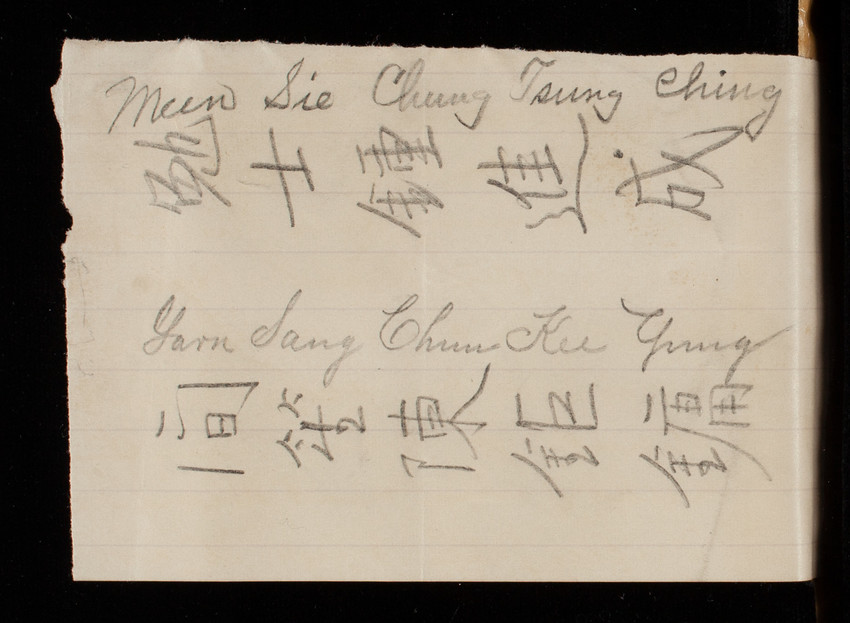 Meen Sie Chung Tsung Ching
勉士鍾進成
Yarn Sang Chun Kee Yung
間笙陳鉅鏞